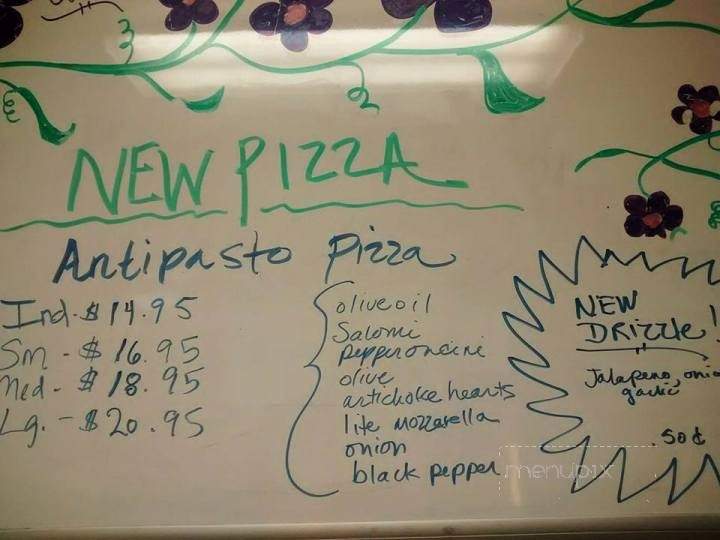 NEW PIZZA
Antipasto Pizza
Ind. $14.95
Sm - $16.95
Med - $18.95
Lg. - $20.95
olive oil
Salomi
Pepperoncini
olive
artichoke hearts
lite mozzarella
onion
black pepper
NEW
DRIZZLE!
Jalapeno, onio
garlic
.50¢
menupix